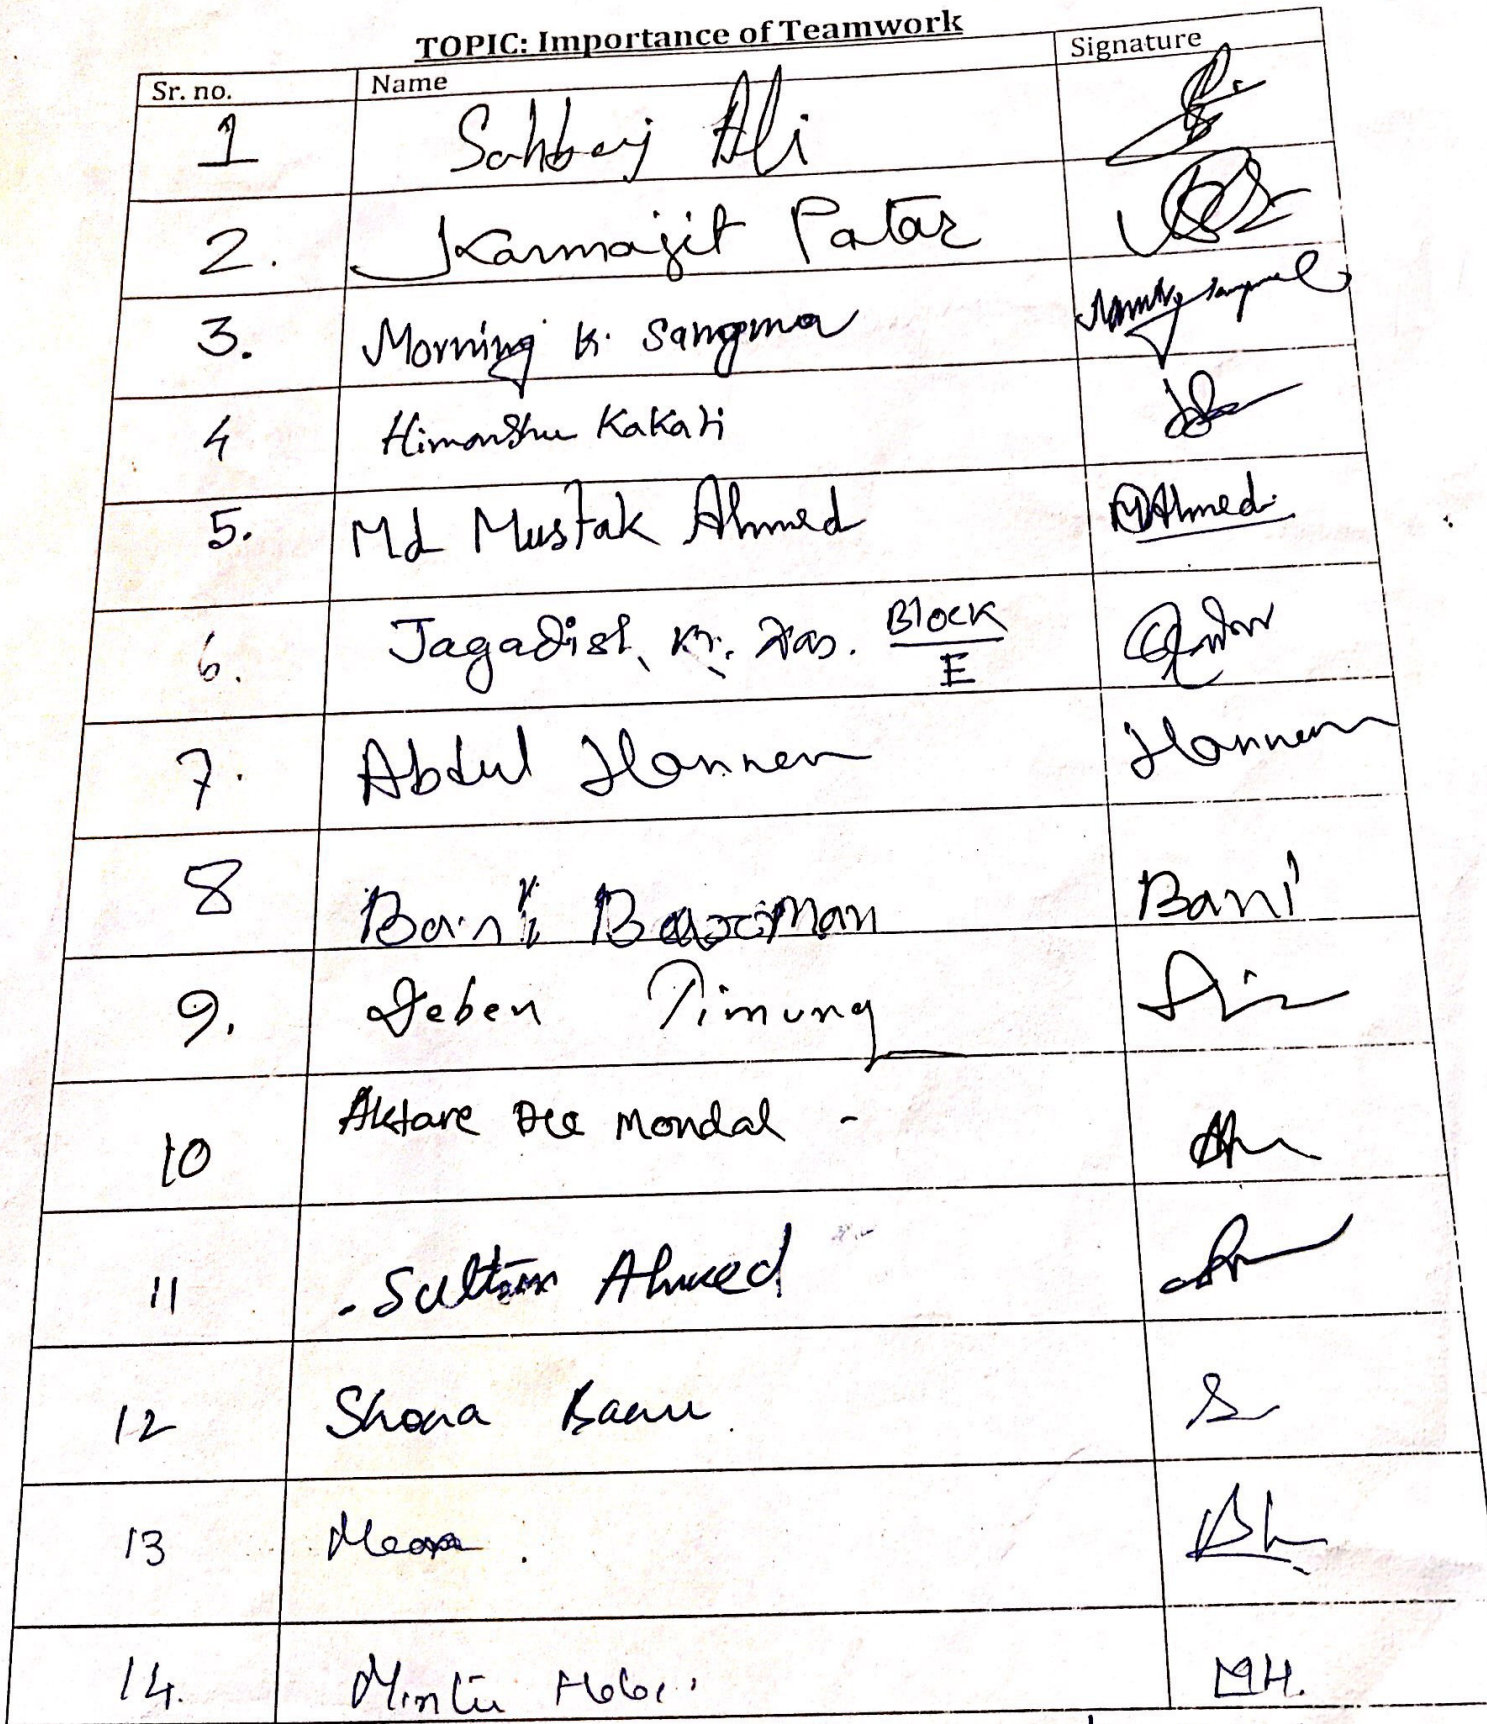 TOPIC: Importance of Teamwork
Sr. no. Name Signature
1 Sahbaj Ali
2. Karmajit Patar
3. Morning K. Sangma
4 Himanshu Kakati
5. Md Mustak Ahmed MAhmed.
6. Jagadish Kr. Das. Block
E
7. Abdul Hannen Hannen
8 Bani Barman Bani
9. Deben Timung
10 Aktare Mondal -
11 Sultan Ahmed
12 Shona Banu
13
14. Mintu MH.